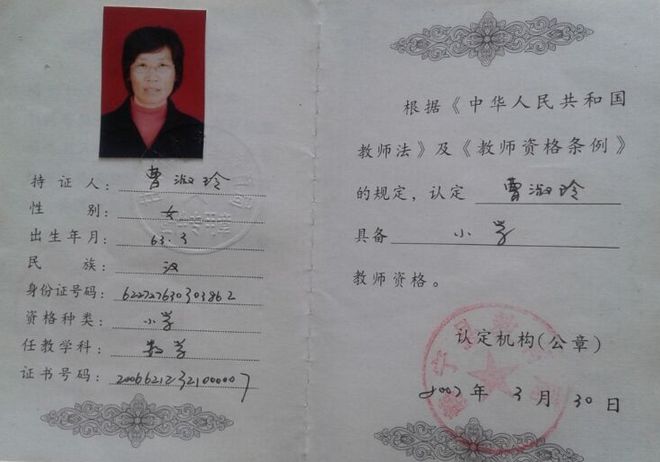 持证人：曹淑玲
性别：女
出生年月：63.3
民族：汉
身份证号码：622727630303862
资格种类：小学
任教学科：数学
证书号码：20066212321000007
根据《中华人民共和国
教师法》及《教师资格条例》
的规定，认定 曹淑玲
具备 小学
教师资格。
认定机构(公章)
2007年3月30日